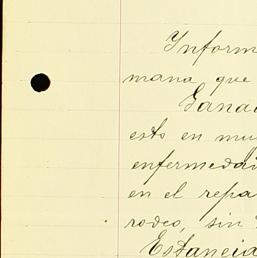 Inform
mana que
Ganad
esto en mu
enfermedad
en el repa
rodeo, sin
Estancia